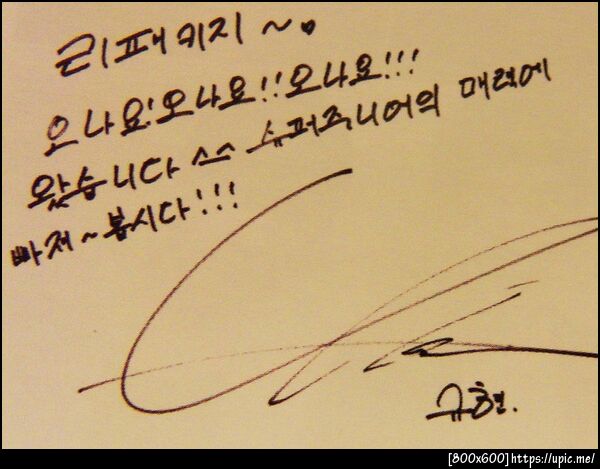 리패키지~.
오나요!오나요!!오나요!!!
왔습니다 ^^ 슈퍼주니어의 매력에
빠져~봅시다!!!
규현.
[800x600]https://upic.me/